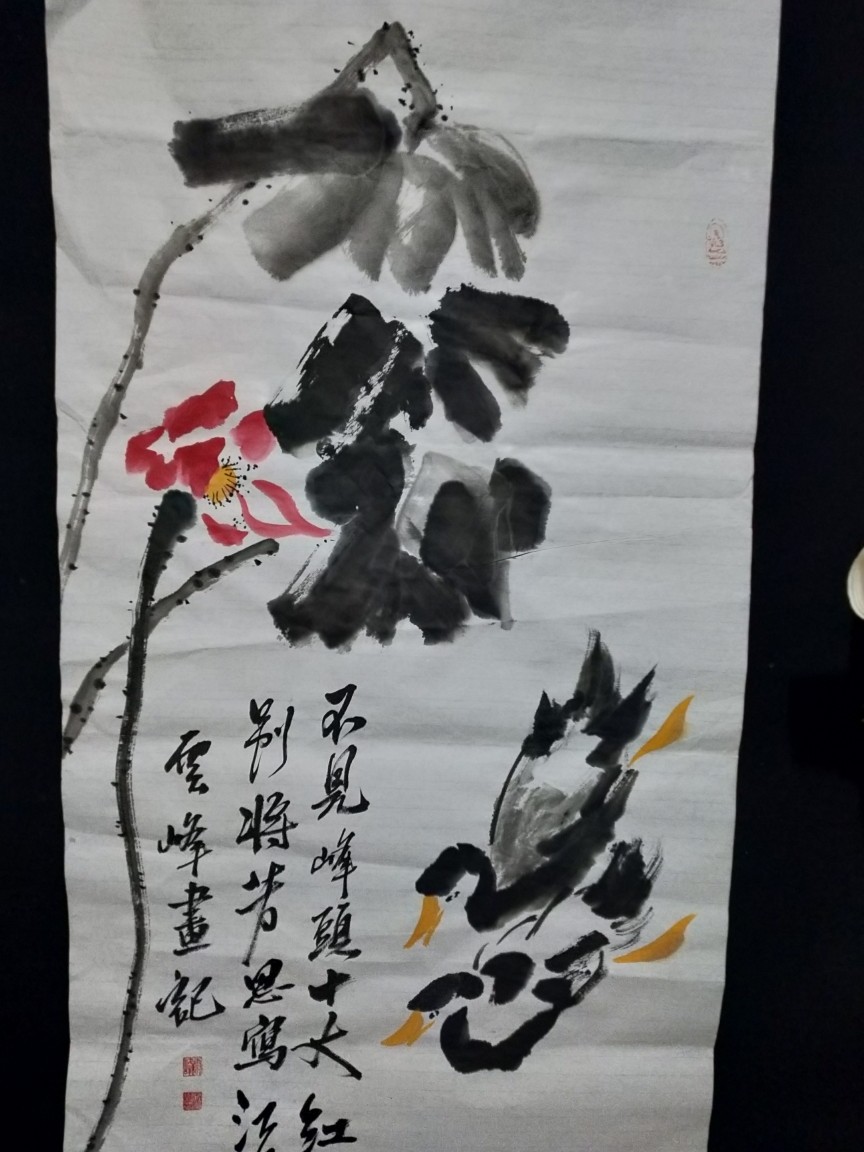 不見峰頭十丈紅
別將芳思寫江
雲峰畫記